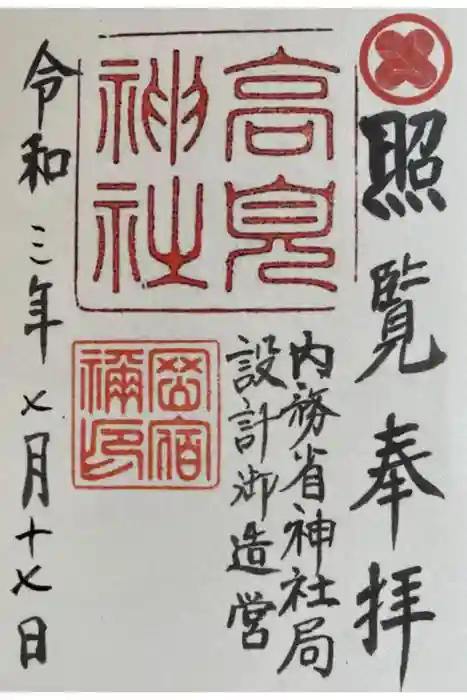 照覧奉拝
内務省神社局
設計御造営
高見
神社
岡宿
禰印
令和三年七月十七日